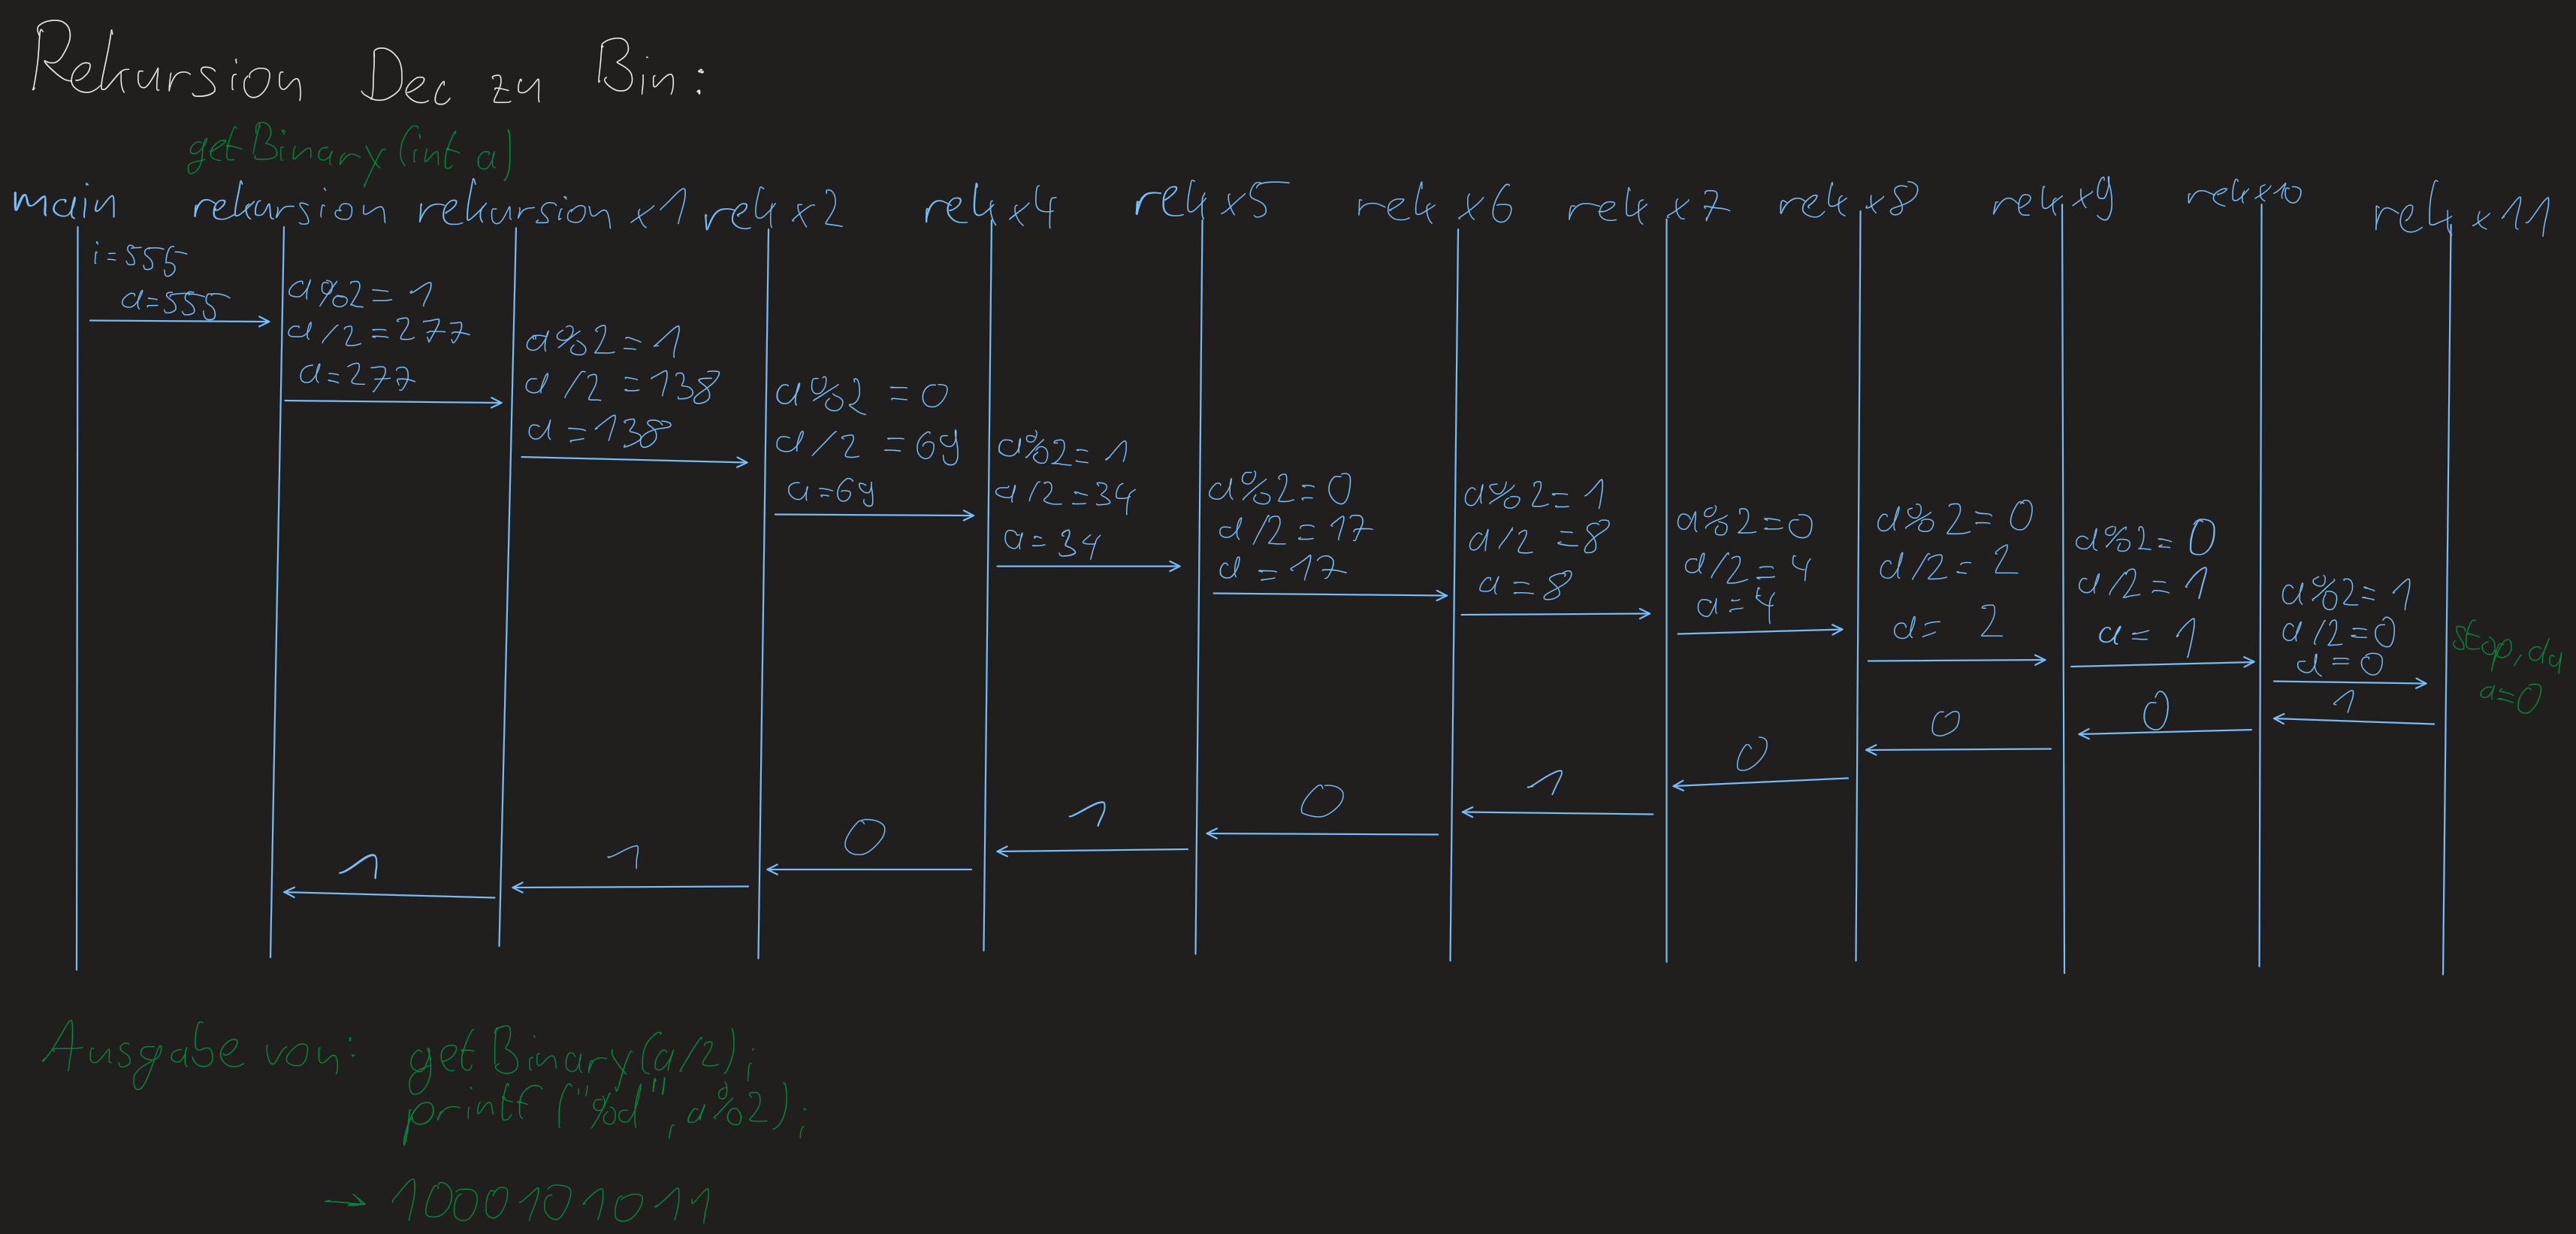 Rekursion Dec zu Bin:
getBinary(int a)
main rekursion rekursion x1 rek x2 rek x4 rek x5 rek x6 rek x7 rek x8 rek x9 rek x10 rek x11
i=555
a=555
a%2=1
a/2=277
a=277
a%2=1
a/2=138
a=138
a%2=0
a/2=69
a=69
a%2=1
a/2=34
a=34
a%2=0
a/2=17
a=17
a%2=1
a/2=8
a=8
a%2=0
a/2=4
a=4
a%2=0
a/2=2
a=2
a%2=0
a/2=1
a=1
a%2=1
a/2=0
a=0
stop, da
a=0
1 1 0 1 0 1 0 0 0 1
Ausgabe von: getBinary(a/2);
printf("%d", a%2);
→ 1000101011